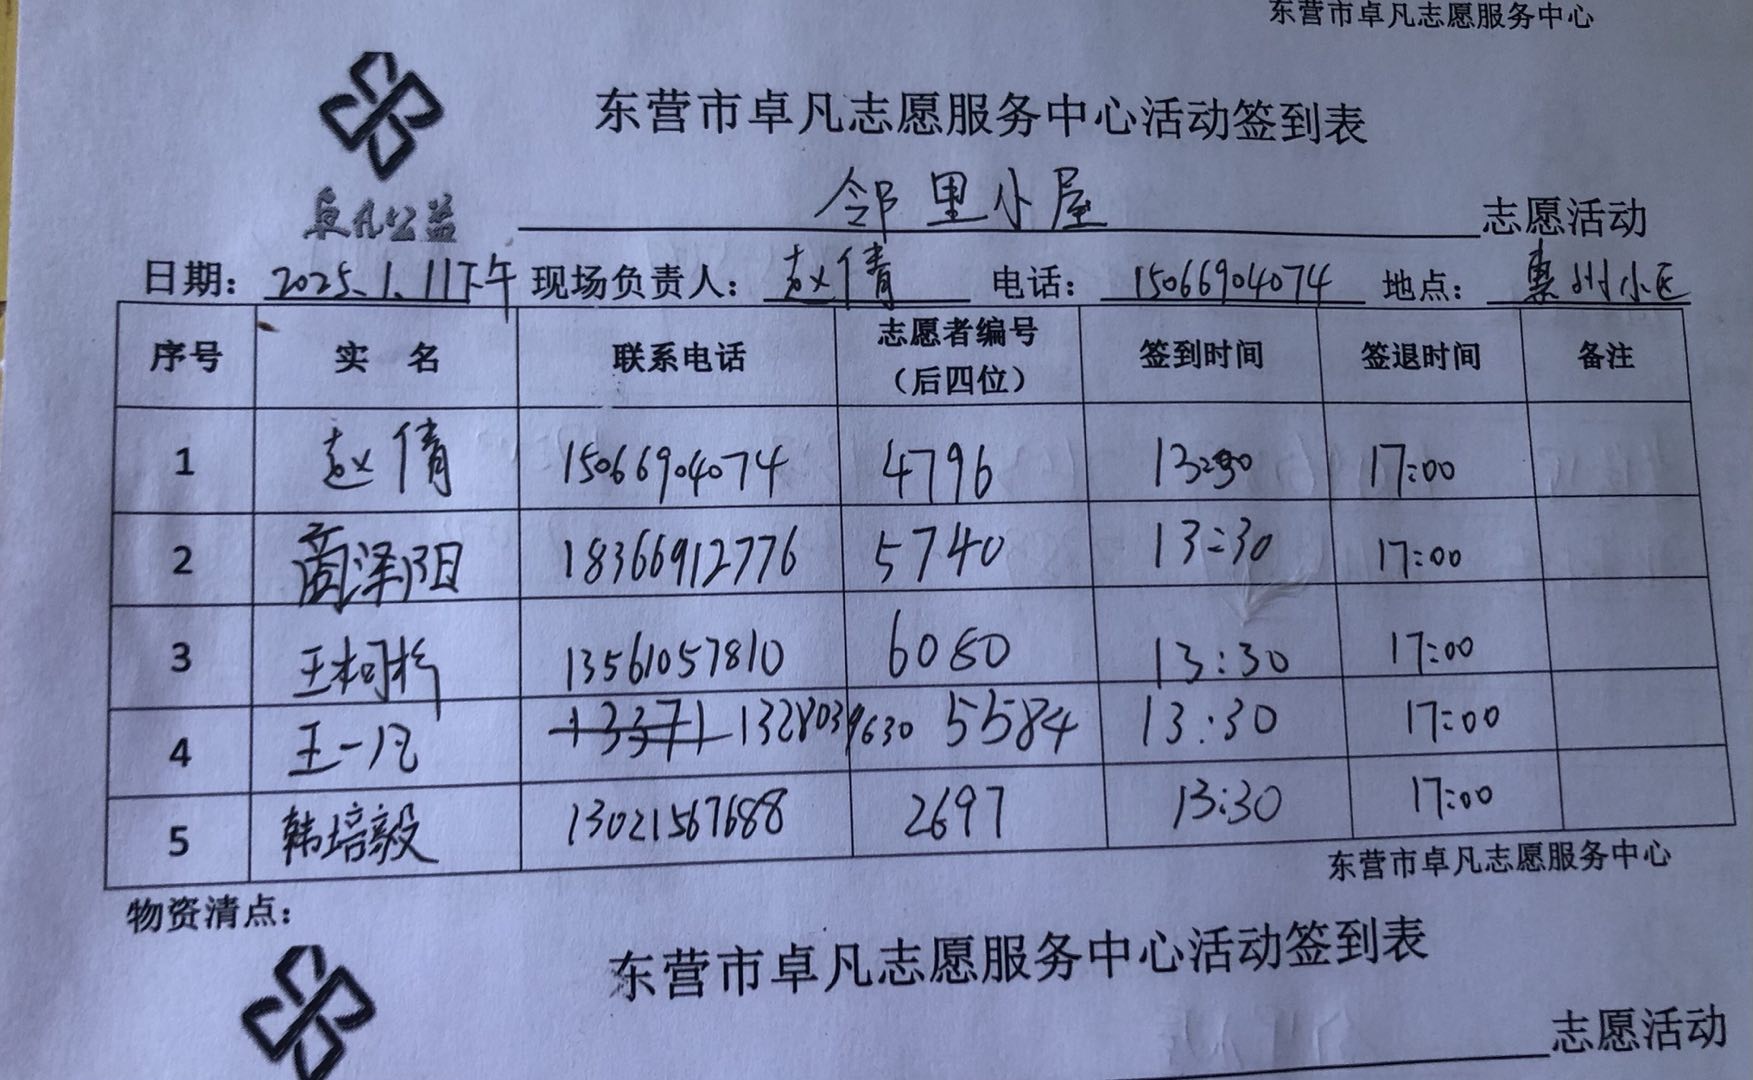 东营市卓凡志愿服务中心
东营市卓凡志愿服务中心活动签到表
卓凡公益
邻里小屋 志愿活动
日期：2025.1.11下午 现场负责人：赵倩 电话：15066904074 地点：惠州小区
序号 实 名 联系电话 志愿者编号（后四位） 签到时间 签退时间 备注
1 赵倩 15066904074 4796 13:30 17:00
2 商泽阳 18366912776 5740 13:30 17:00
3 王柯 13561057810 6080 13:30 17:00
4 王一凡 13371 13280399630 5584 13:30 17:00
5 韩培毅 13021567688 2697 13:30 17:00
东营市卓凡志愿服务中心
物资清点：
东营市卓凡志愿服务中心活动签到表
志愿活动